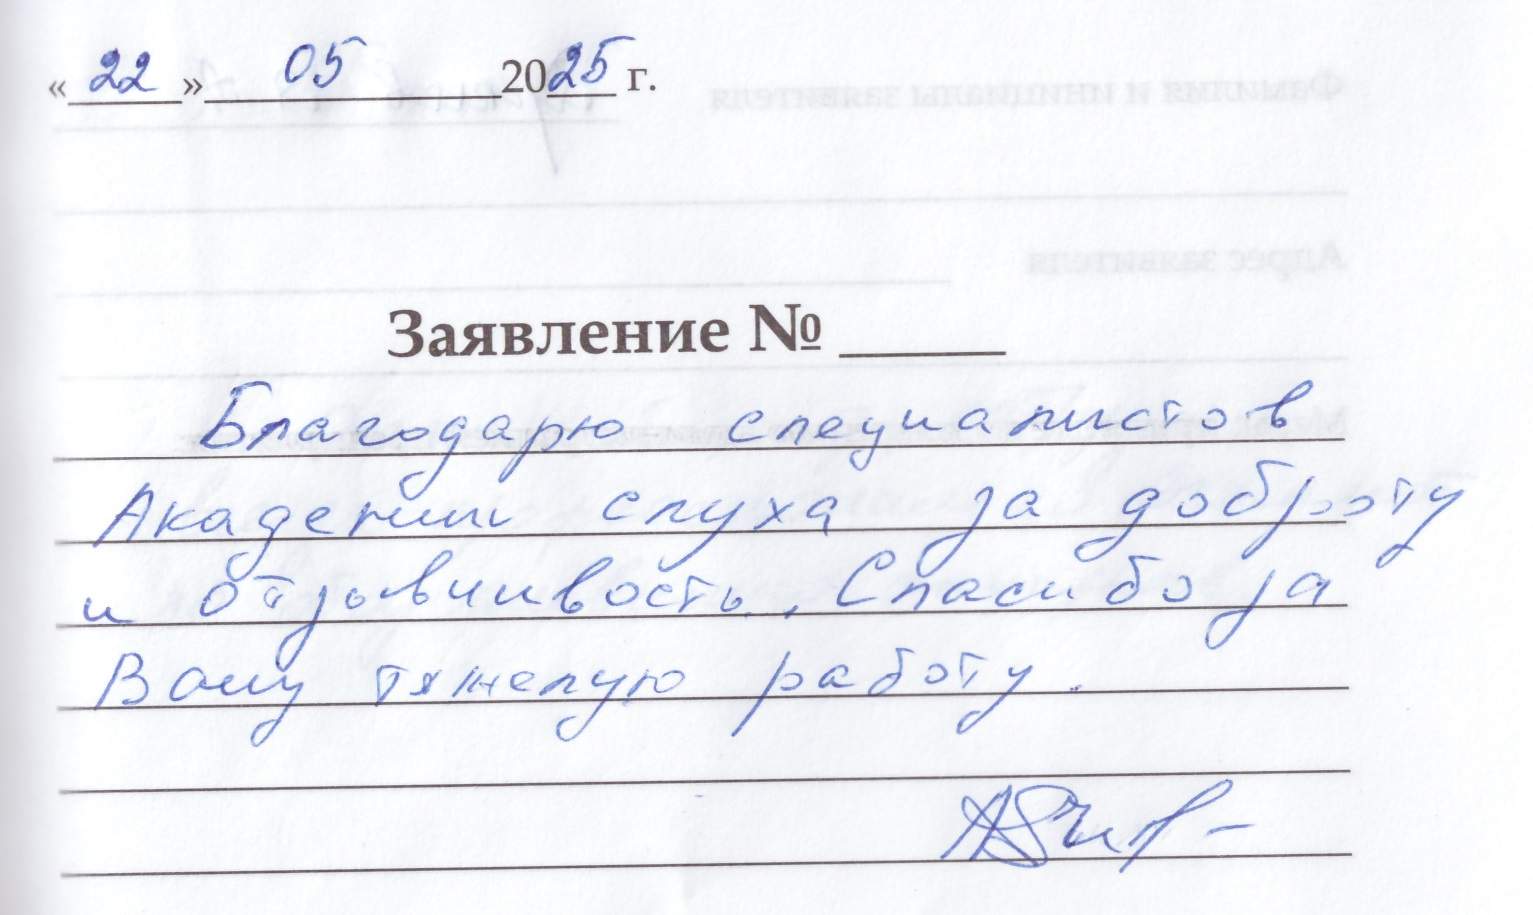 « 22 » 05 2025 г.
Заявление № _____
Благодарю специалистов
Академии слуха за доброту
и отзывчивость. Спасибо за
Вашу тяжелую работу.